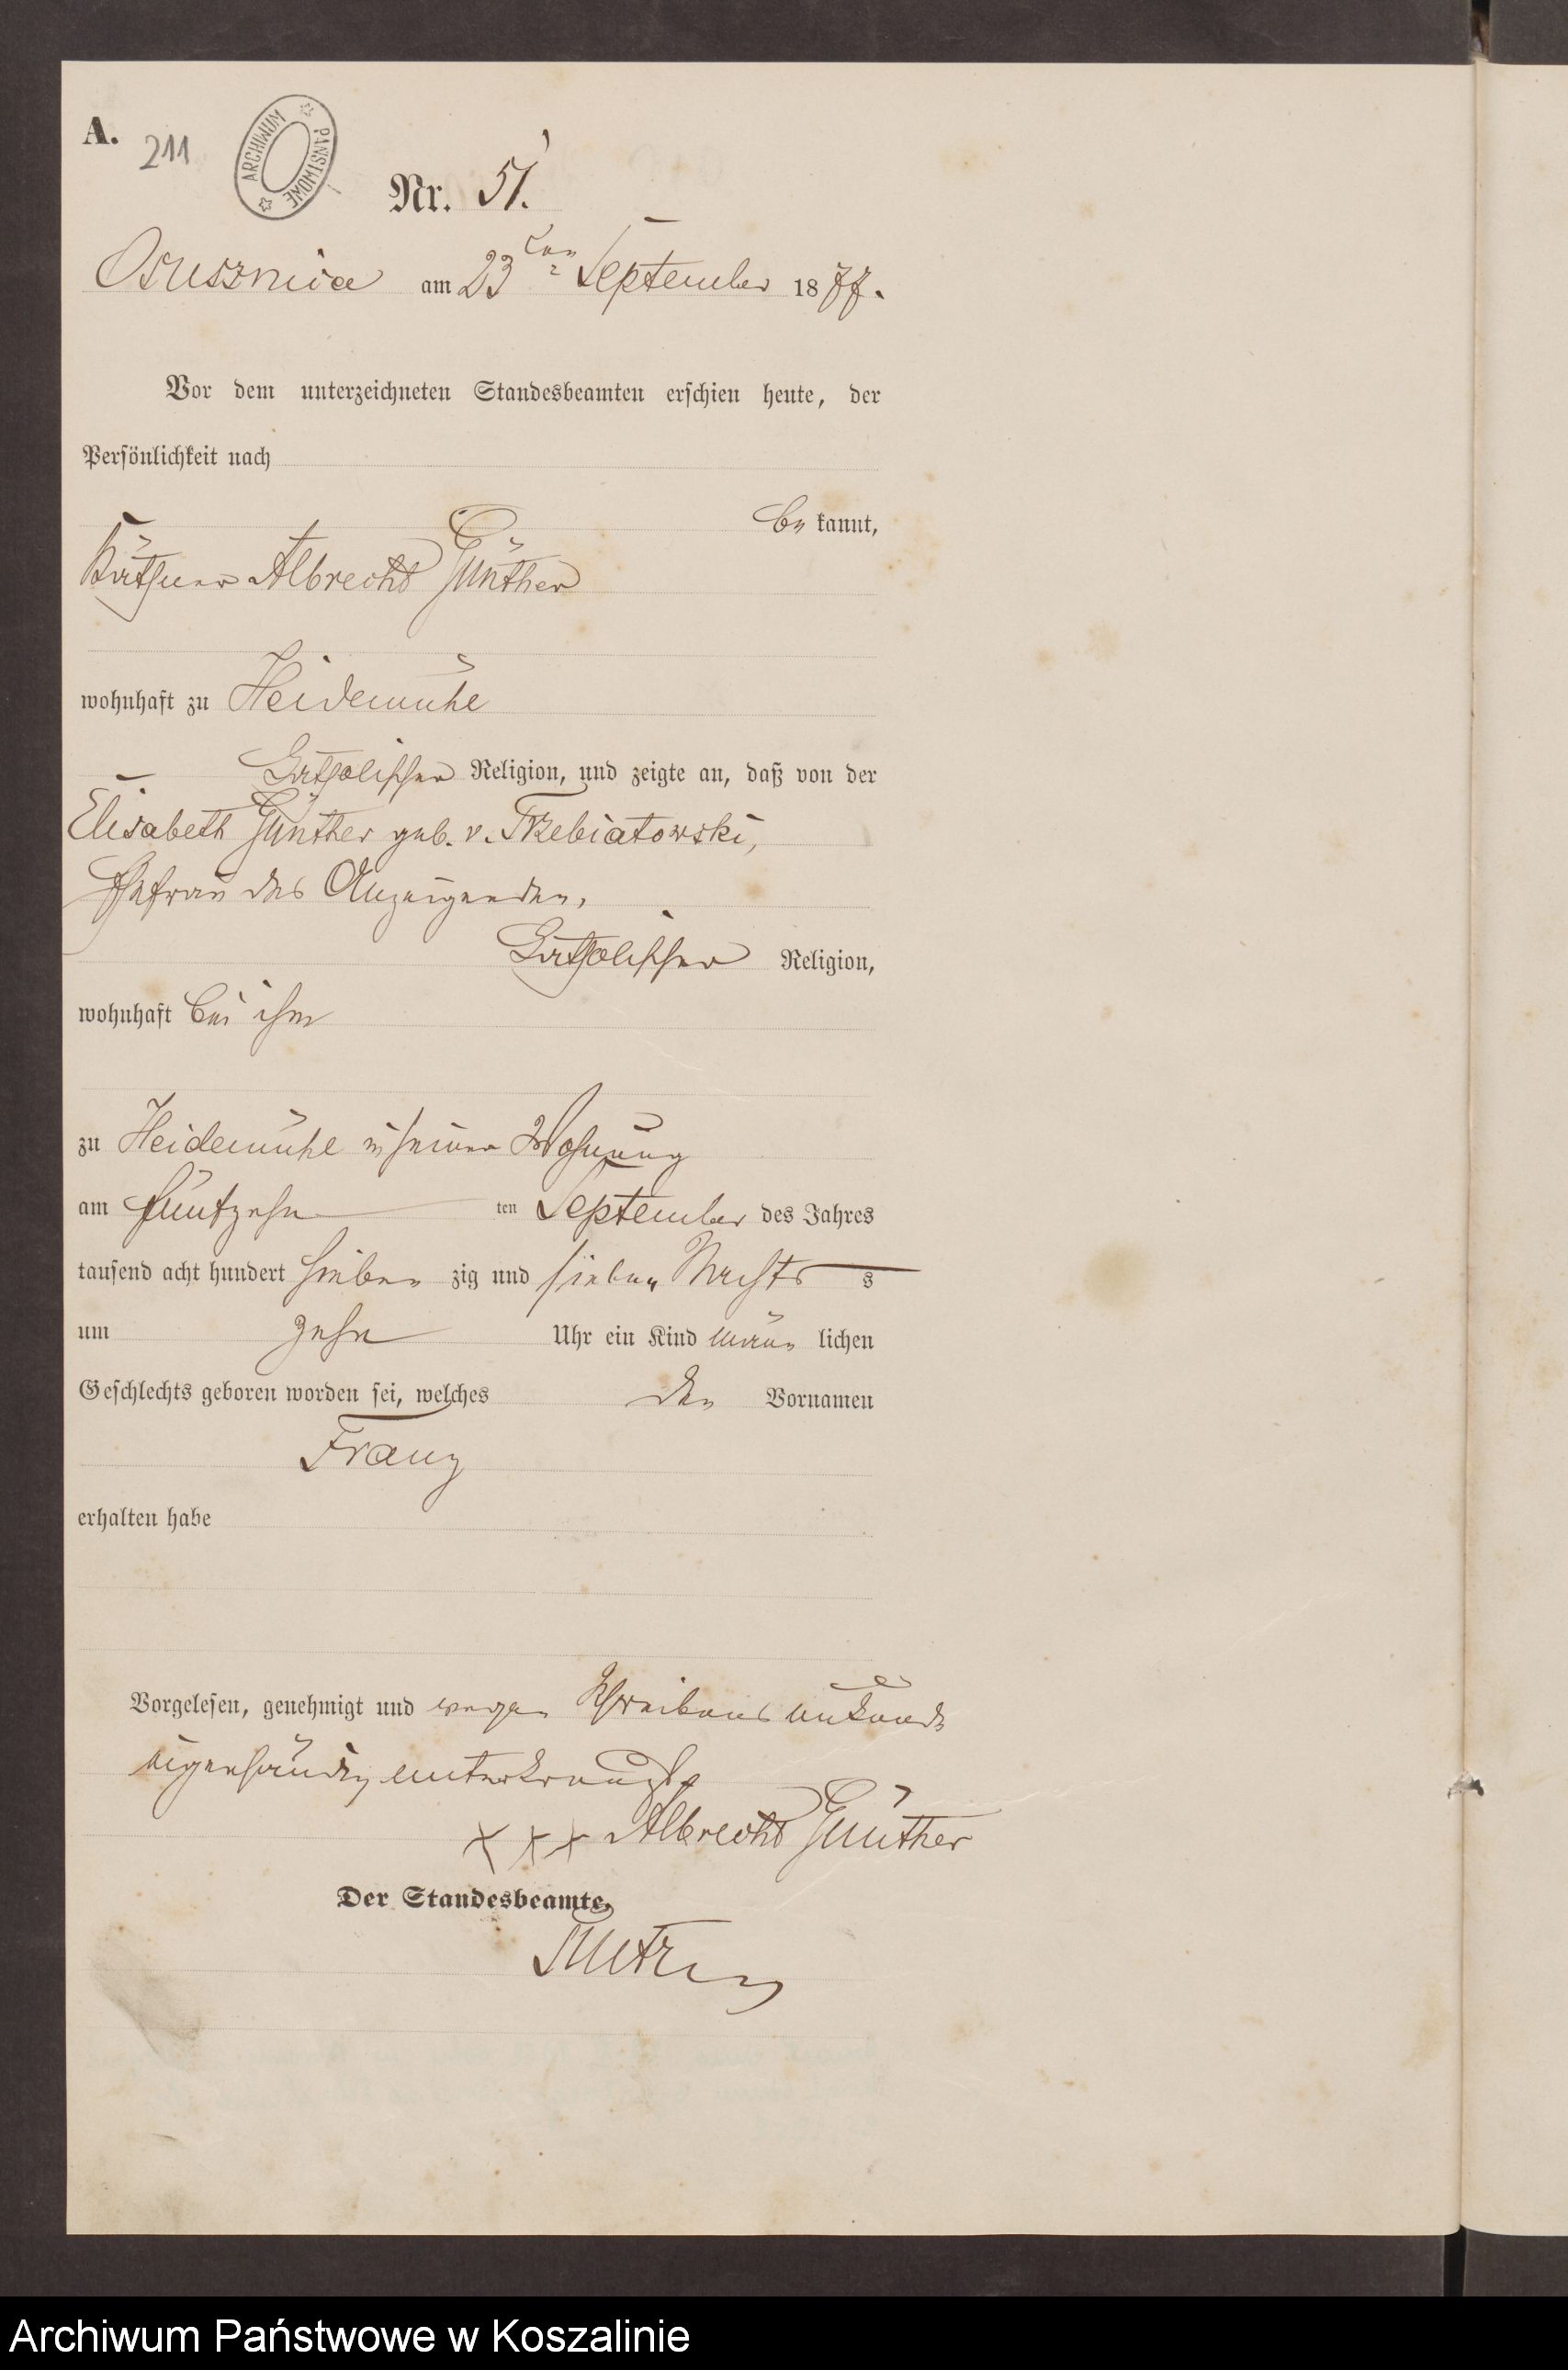 A.
211
ARCHIWUM PAŃSTWOWE
Nr. 51.
Osusznica am 23ten September 1877.
Vor dem unterzeichneten Standesbeamten erschien heute, der
Persönlichkeit nach
be kannt,
Käthner Albrecht Günther
wohnhaft zu Heidemühe
katholischer Religion, und zeigte an, daß von der
Elisabeth Günther geb. v. Trzebiatowski,
Ehefrau des Anzeigenden,
katholischer Religion,
wohnhaft bei ihm
zu Heidemühe in seiner Wohnung
am fünfzehn ten September des Jahres
tausend acht hundert sieben zig und sieben Nachts s
um zehn Uhr ein Kind män lichen
Geschlechts geboren worden sei, welches den Vornamen
Franz
erhalten habe
Vorgelesen, genehmigt und wegen Schreibens unkunde
eigenhändig unterkreuzt
XXX Albrecht Günther
Der Standesbeamte.
Archiwum Państwowe w Koszalinie